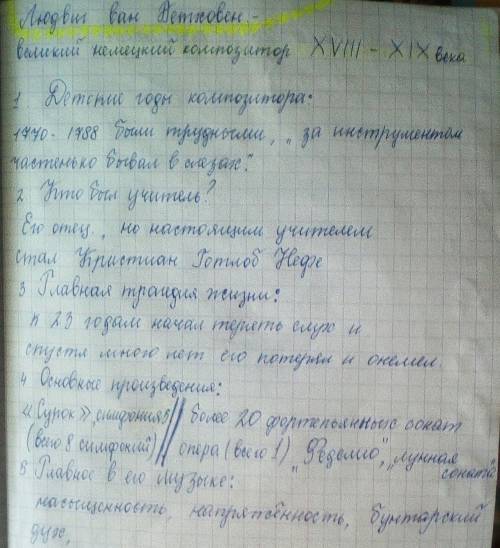 Людвиг ван Бетховен -
великий немецкий композитор XVIII - XIX века
1 Детские годы композитора:
1770 - 1788 были трудными, „за инструментом
частенько бывал в слезах".
2 Кто был учитель?
Его отец, но настоящим учителем
стал Кристиан Готлоб Нефе
3 Главная трагедия жизни:
к 23 годам начал терять слух и
спустя много лет его потерял и онемел.
4 Основные произведения:
«Сурок», симфония 5 // более 20 фортепьянных сонат
(всего 8 симфоний) // опера (всего 1) „Феделио", „лунная
соната
5 Главное в его музыке:
насыщенность, напряжённость, бунтарский
дух.